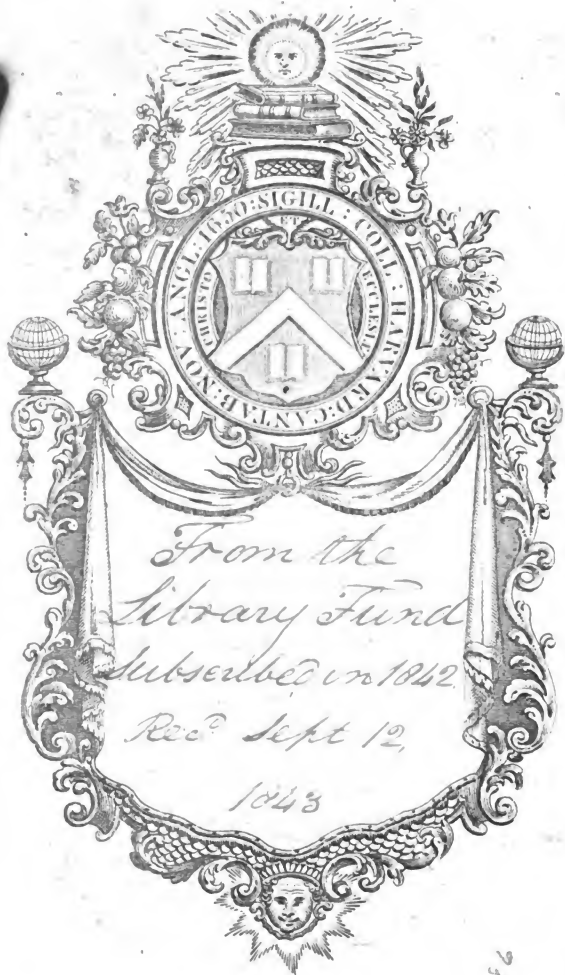 SIGILL : COLL : HARVARD : CANTAB : NOV : ANGL : 1650 :
CHRISTO ET ECCLESIÆ
From the
Library Fund
Subscribed in 1842.
Rec.d Sept 12,
1843